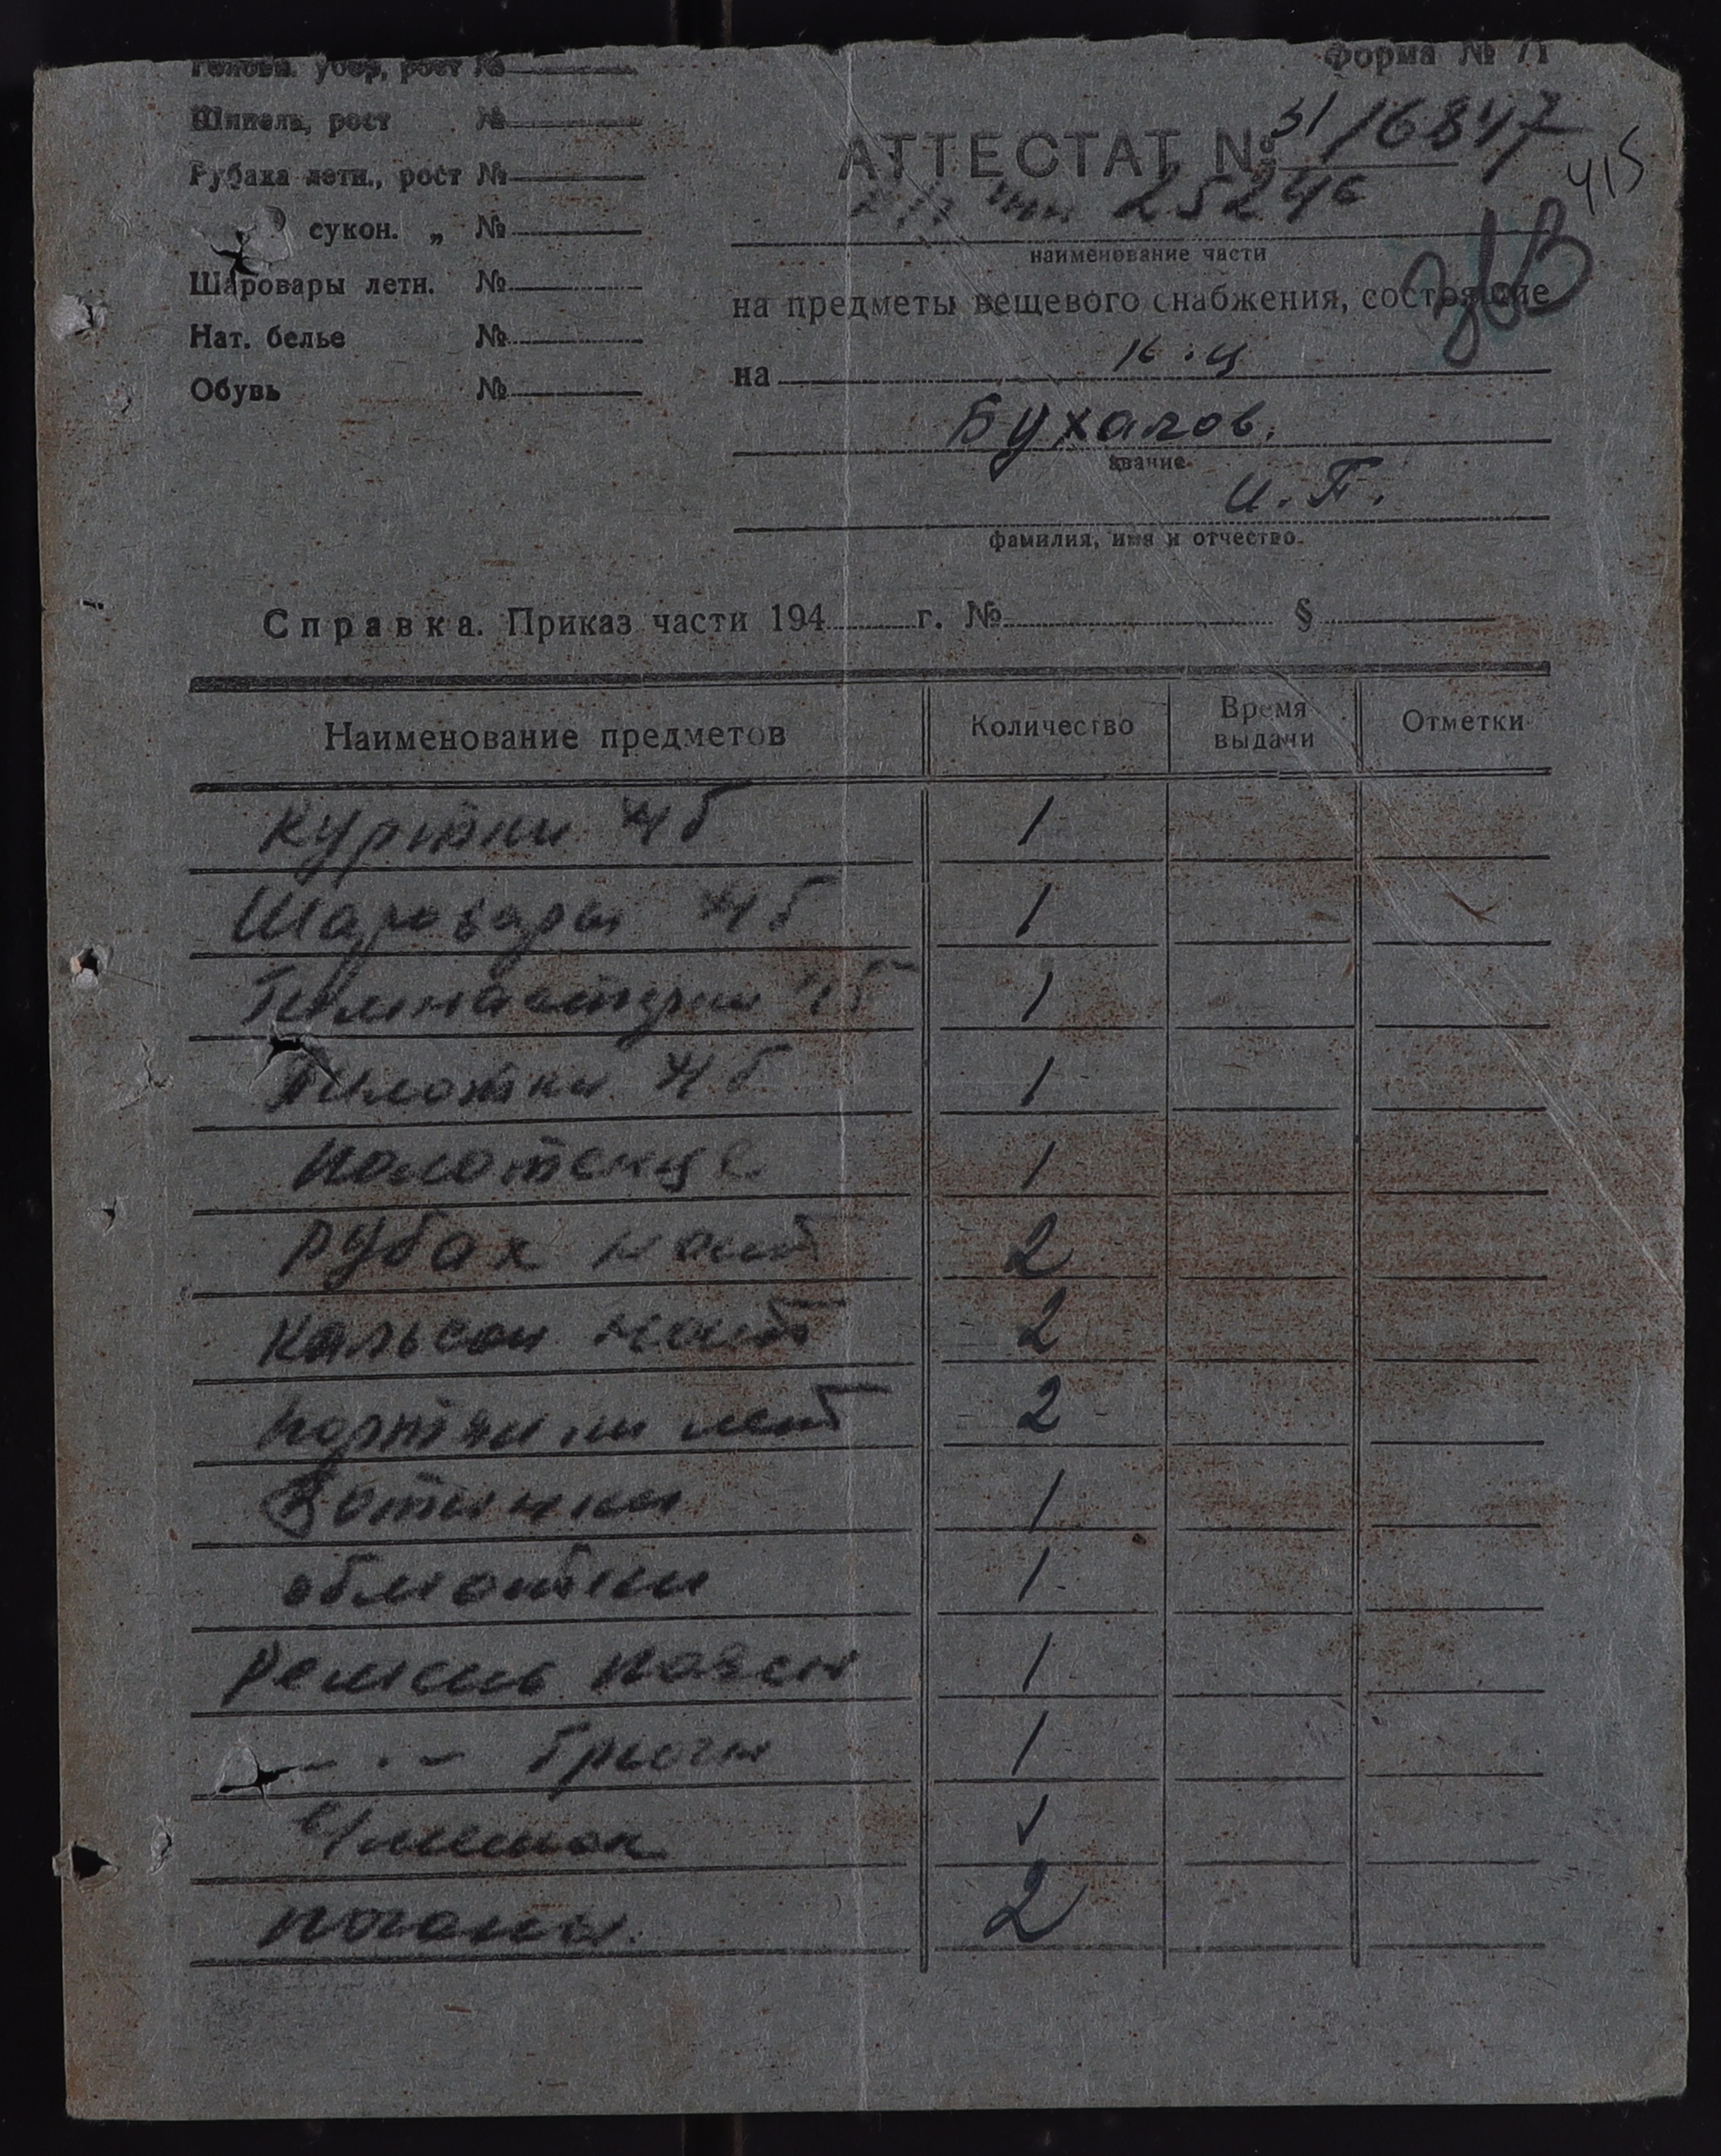 Головн. убор, рост №
Шинель, рост №
Рубаха летн., рост №
сукон. „ №
Шаровары летн. №
Нат. белье №
Обувь №
Форма № 71
АТТЕСТАТ № 31/6847
415
25246
наименование части
на предметы вещевого снабжения, состоящие
на
Бухалов.
звание
И. П.
фамилия, имя и отчество.
Справка. Приказ части 194 г. № §
Наименование предметов Количество Время выдачи Отметки
Куртки х/б 1
Шаровары х/б 1
Гимнастерки х/б 1
Пилотки х/б 1
Полотенце 1
Рубах нат 2
Кальсон нат 2
портянки лет 2
Ботинки 1
обмотки 1
Ремень поясн 1
— . — брючн 1
1
погоны. 2